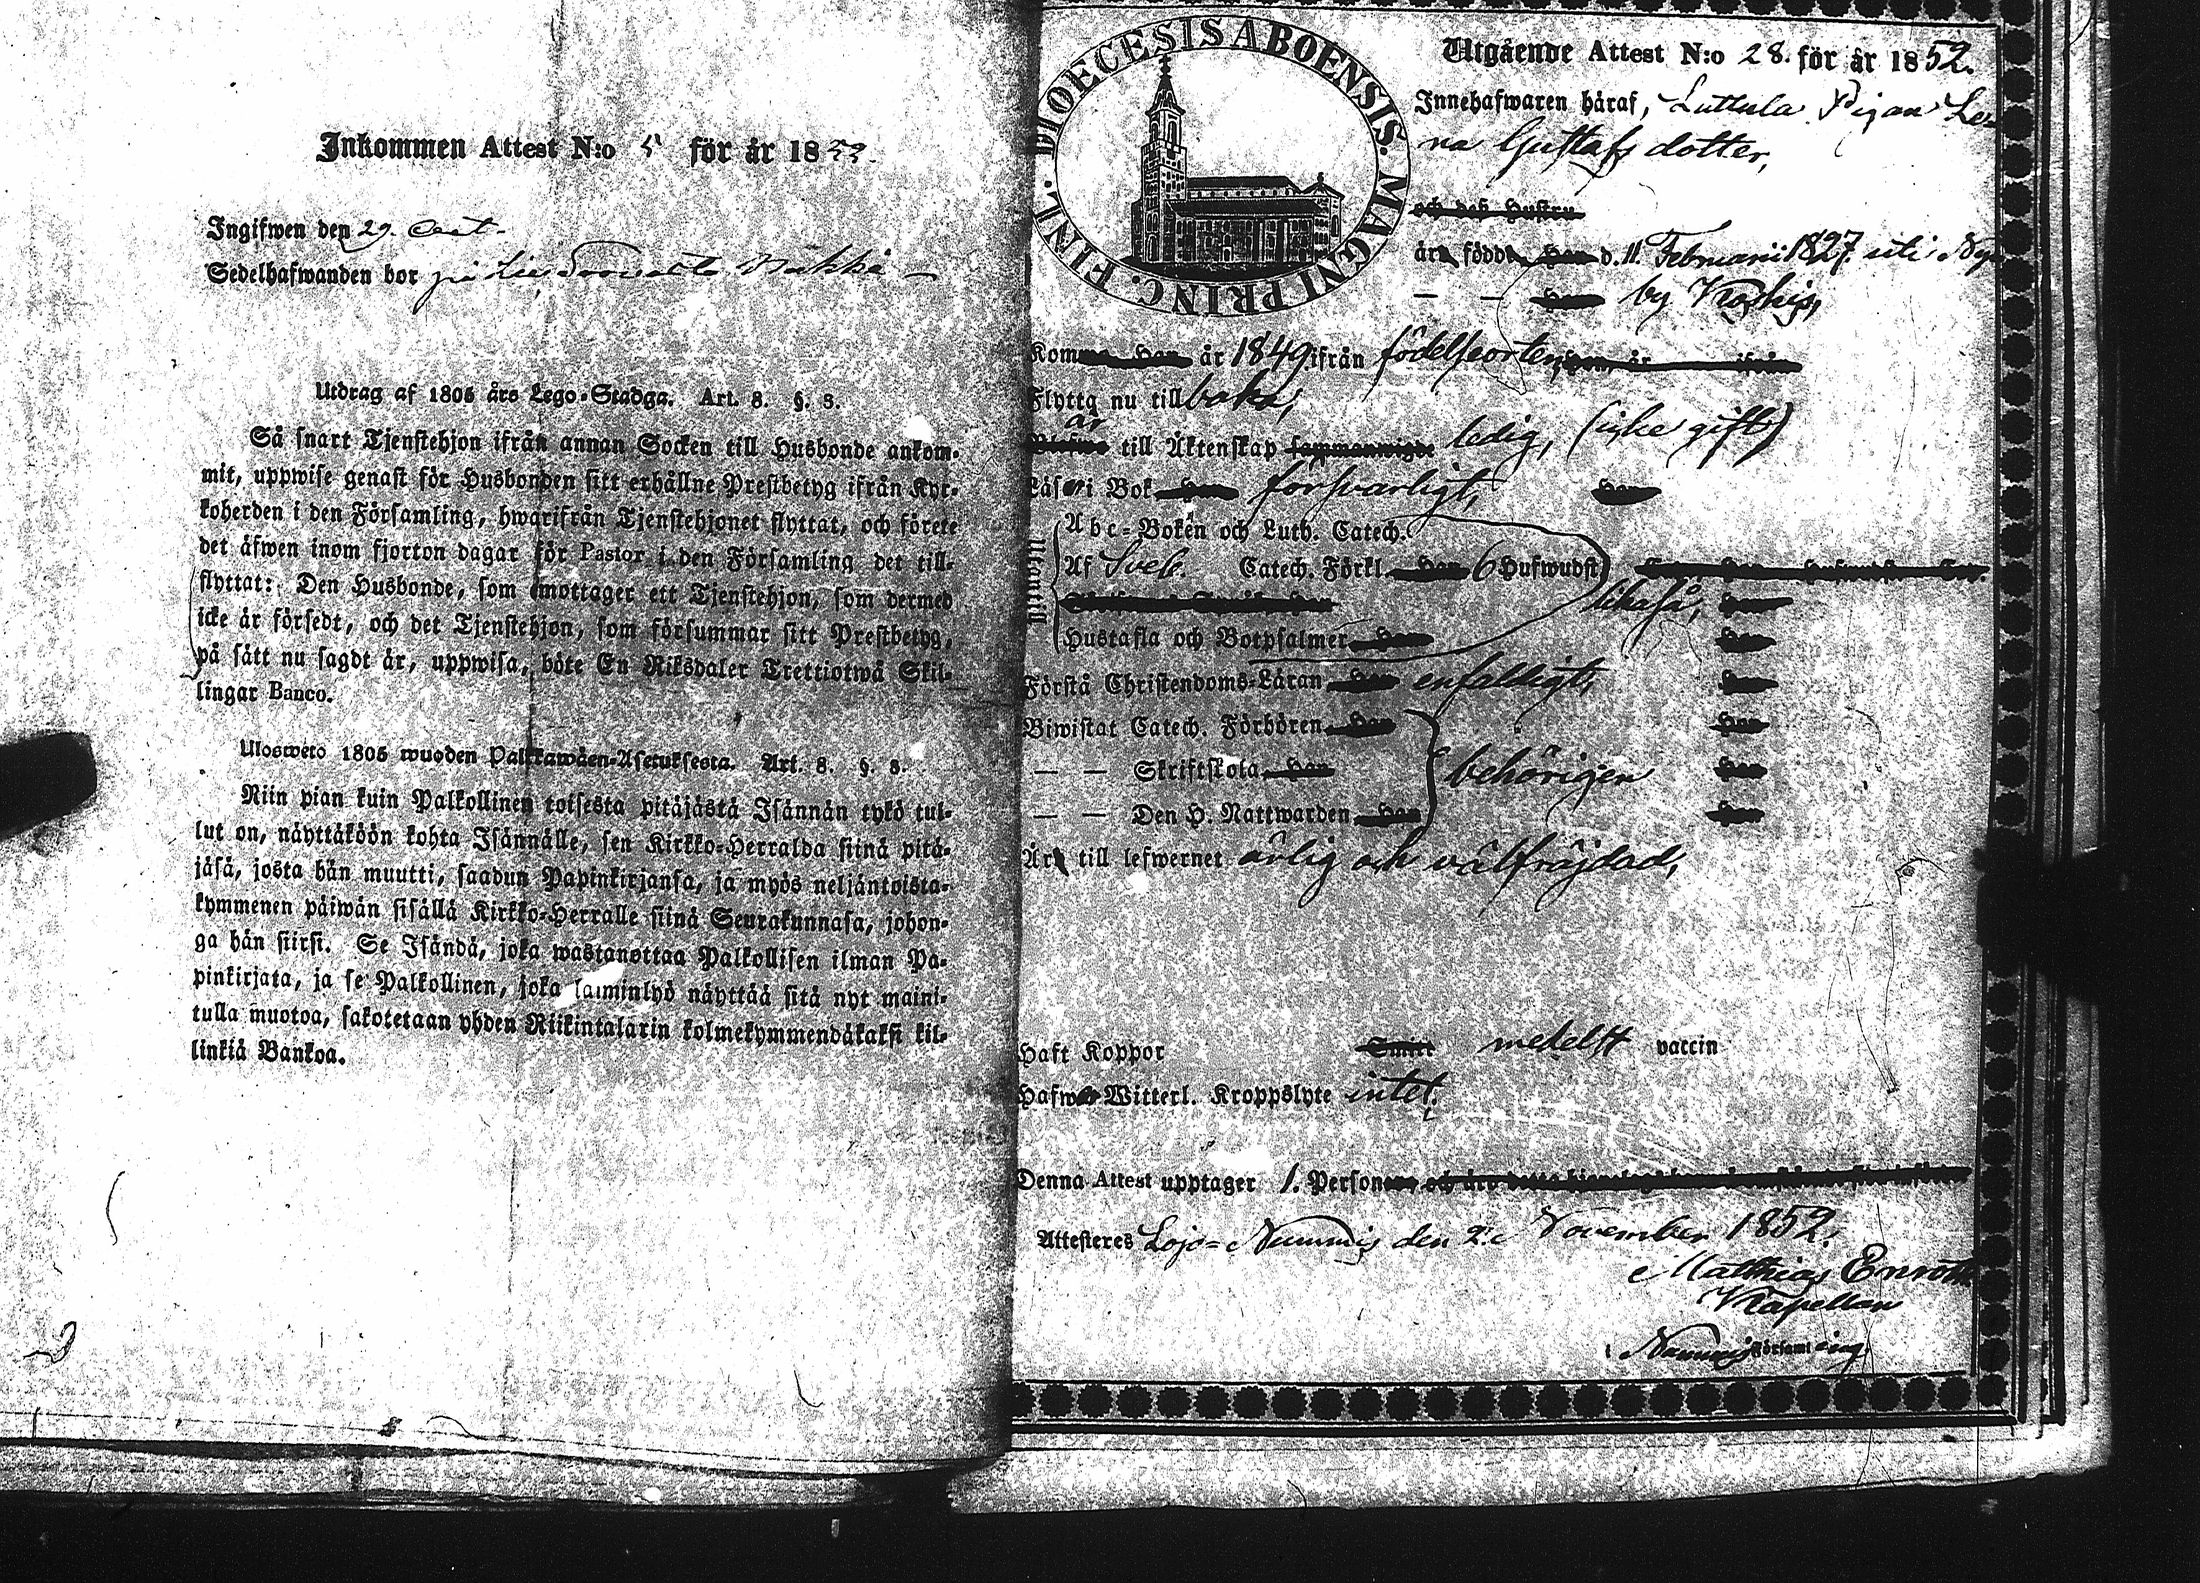 Inkommen Attest N:o 5 för år 1853.
Ingifwen den 29.
Sedelhafwanden bor på
Utdrag af 1805 års Lego-Stadga. Art. 8. §. 3.
Så snart Tjenstehjon ifrån annan Socken till Husbonde ankom-
mit, uppwise genast för Husbonden sitt erhållne Prestbetyg ifrån Kyr-
koherden i den Församling, hwarifrån Tjenstehjonet flyttat, och förete
det äfwen inom fjorton dagar för Pastor i den Församling det till-
flyttat: Den Husbonde, som emottager ett Tjenstehjon, som dermed
icke är försedt, och det Tjenstehjon, som försummar sitt Prestbetyg,
på sätt nu sagdt är, uppwisa, böte En Riksdaler Trettiotwå Skil-
lingar Banco.
Uloswèto 1805 wuoden Palkkawäen-Asetuksesta. Art. 8. §. 3.
Niin pian kuin Palkollinen toisesta pitäjästä Isännän tykö tul-
lut on, näyttäköön kohta Isännälle, sen Kirkko-Herralda siinä pitä-
jäsä, josta hän muutti, saadun Papinkirjansa, ja myös neljäntoista-
kymmenen päiwän sisällä Kirkko-Herralle siinä Seurakunnasa, johon-
ga hän siirsi. Se Isändä, joka wastanottaa Palkollisen ilman Pa-
pinkirjata, ja se Palkollinen, joka laiminlyö näyttää sitä nyt maini-
tulla muotoa, sakotetaan yhden Riikintalarin kolmekymmendäkaksi kil-
linkiä Bankoa.
DIOECESIS ABOENSIS. MAGNI PRINC. FINL.
Utgående Attest N:o 28. för år 1852.
Innehafwaren häraf, Luttula Pigan Le-
na Gustafsdotter,
och deß Hustru
är född d. 11 Februarii 1827 uti
by Koskis,
Kom år 1849 ifrån födelseorten,
Flytta nu tillbaka,
är
till Äktenskap sammanwigde ledig, (icke gift)
Läser i Bok försvarligt,
Utantill
Abc-Boken och Luth. Catech.
Af Sveb. Catech. Förkl. 6 Hufwudst
likaså,
Hustafla och Botpsalmer
Förstå Christendoms-Läran enfaldigt,
Biwistat Catech. Förhören
— — Skriftskola behörigen
— — Den H. Nattwarden
Är till lefwernet ärlig och välfräjdad,
Haft Koppor medelst vaccin
Hafwer Witterl. Kroppslyte intet.
Denna Attest upptager 1. Person
Attesteres Lojo-Nummis den 2. November 1852.
Matthias Enroth
Kapellan
i Nummis Församling